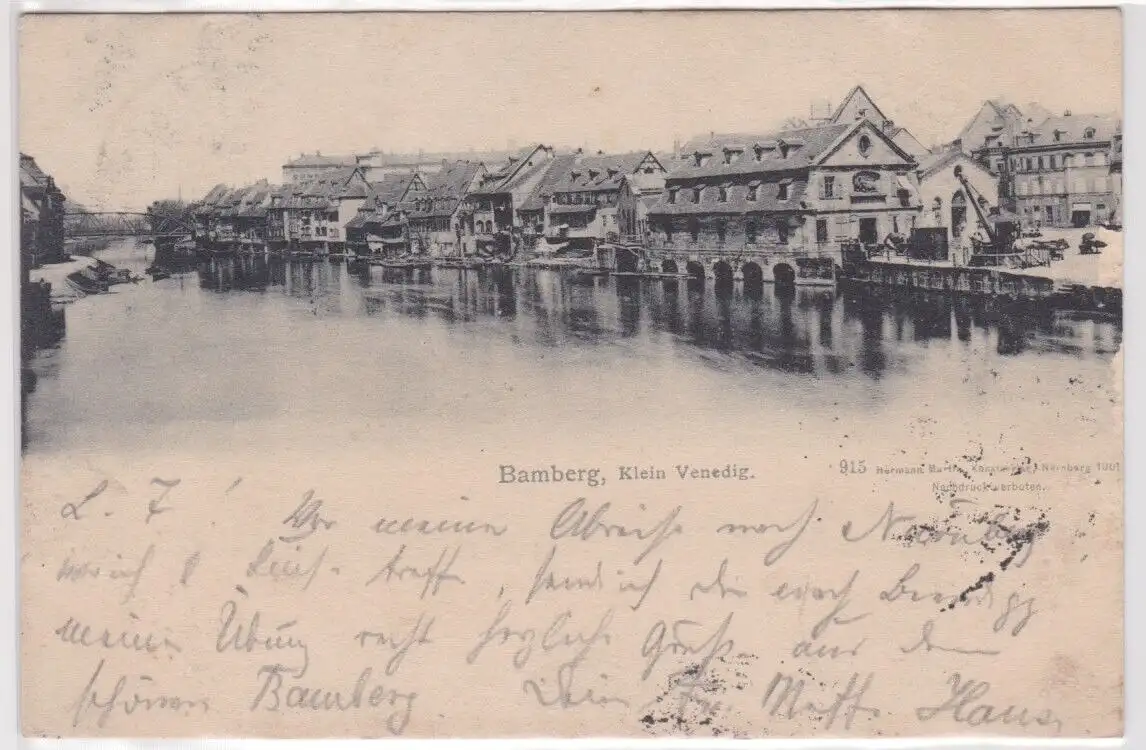 Bamberg, Klein Venedig.
915 Hermann Martin, Kunstverlag, Nürnberg 1901
Nachdruck verboten.
L. Vor meiner Abreise nach Nürnberg
wo ich Luis treffe, sende ich Dir nach Beendigg
meiner Übung recht herzliche Grüße aus dem
schönen Bamberg Dein Hans